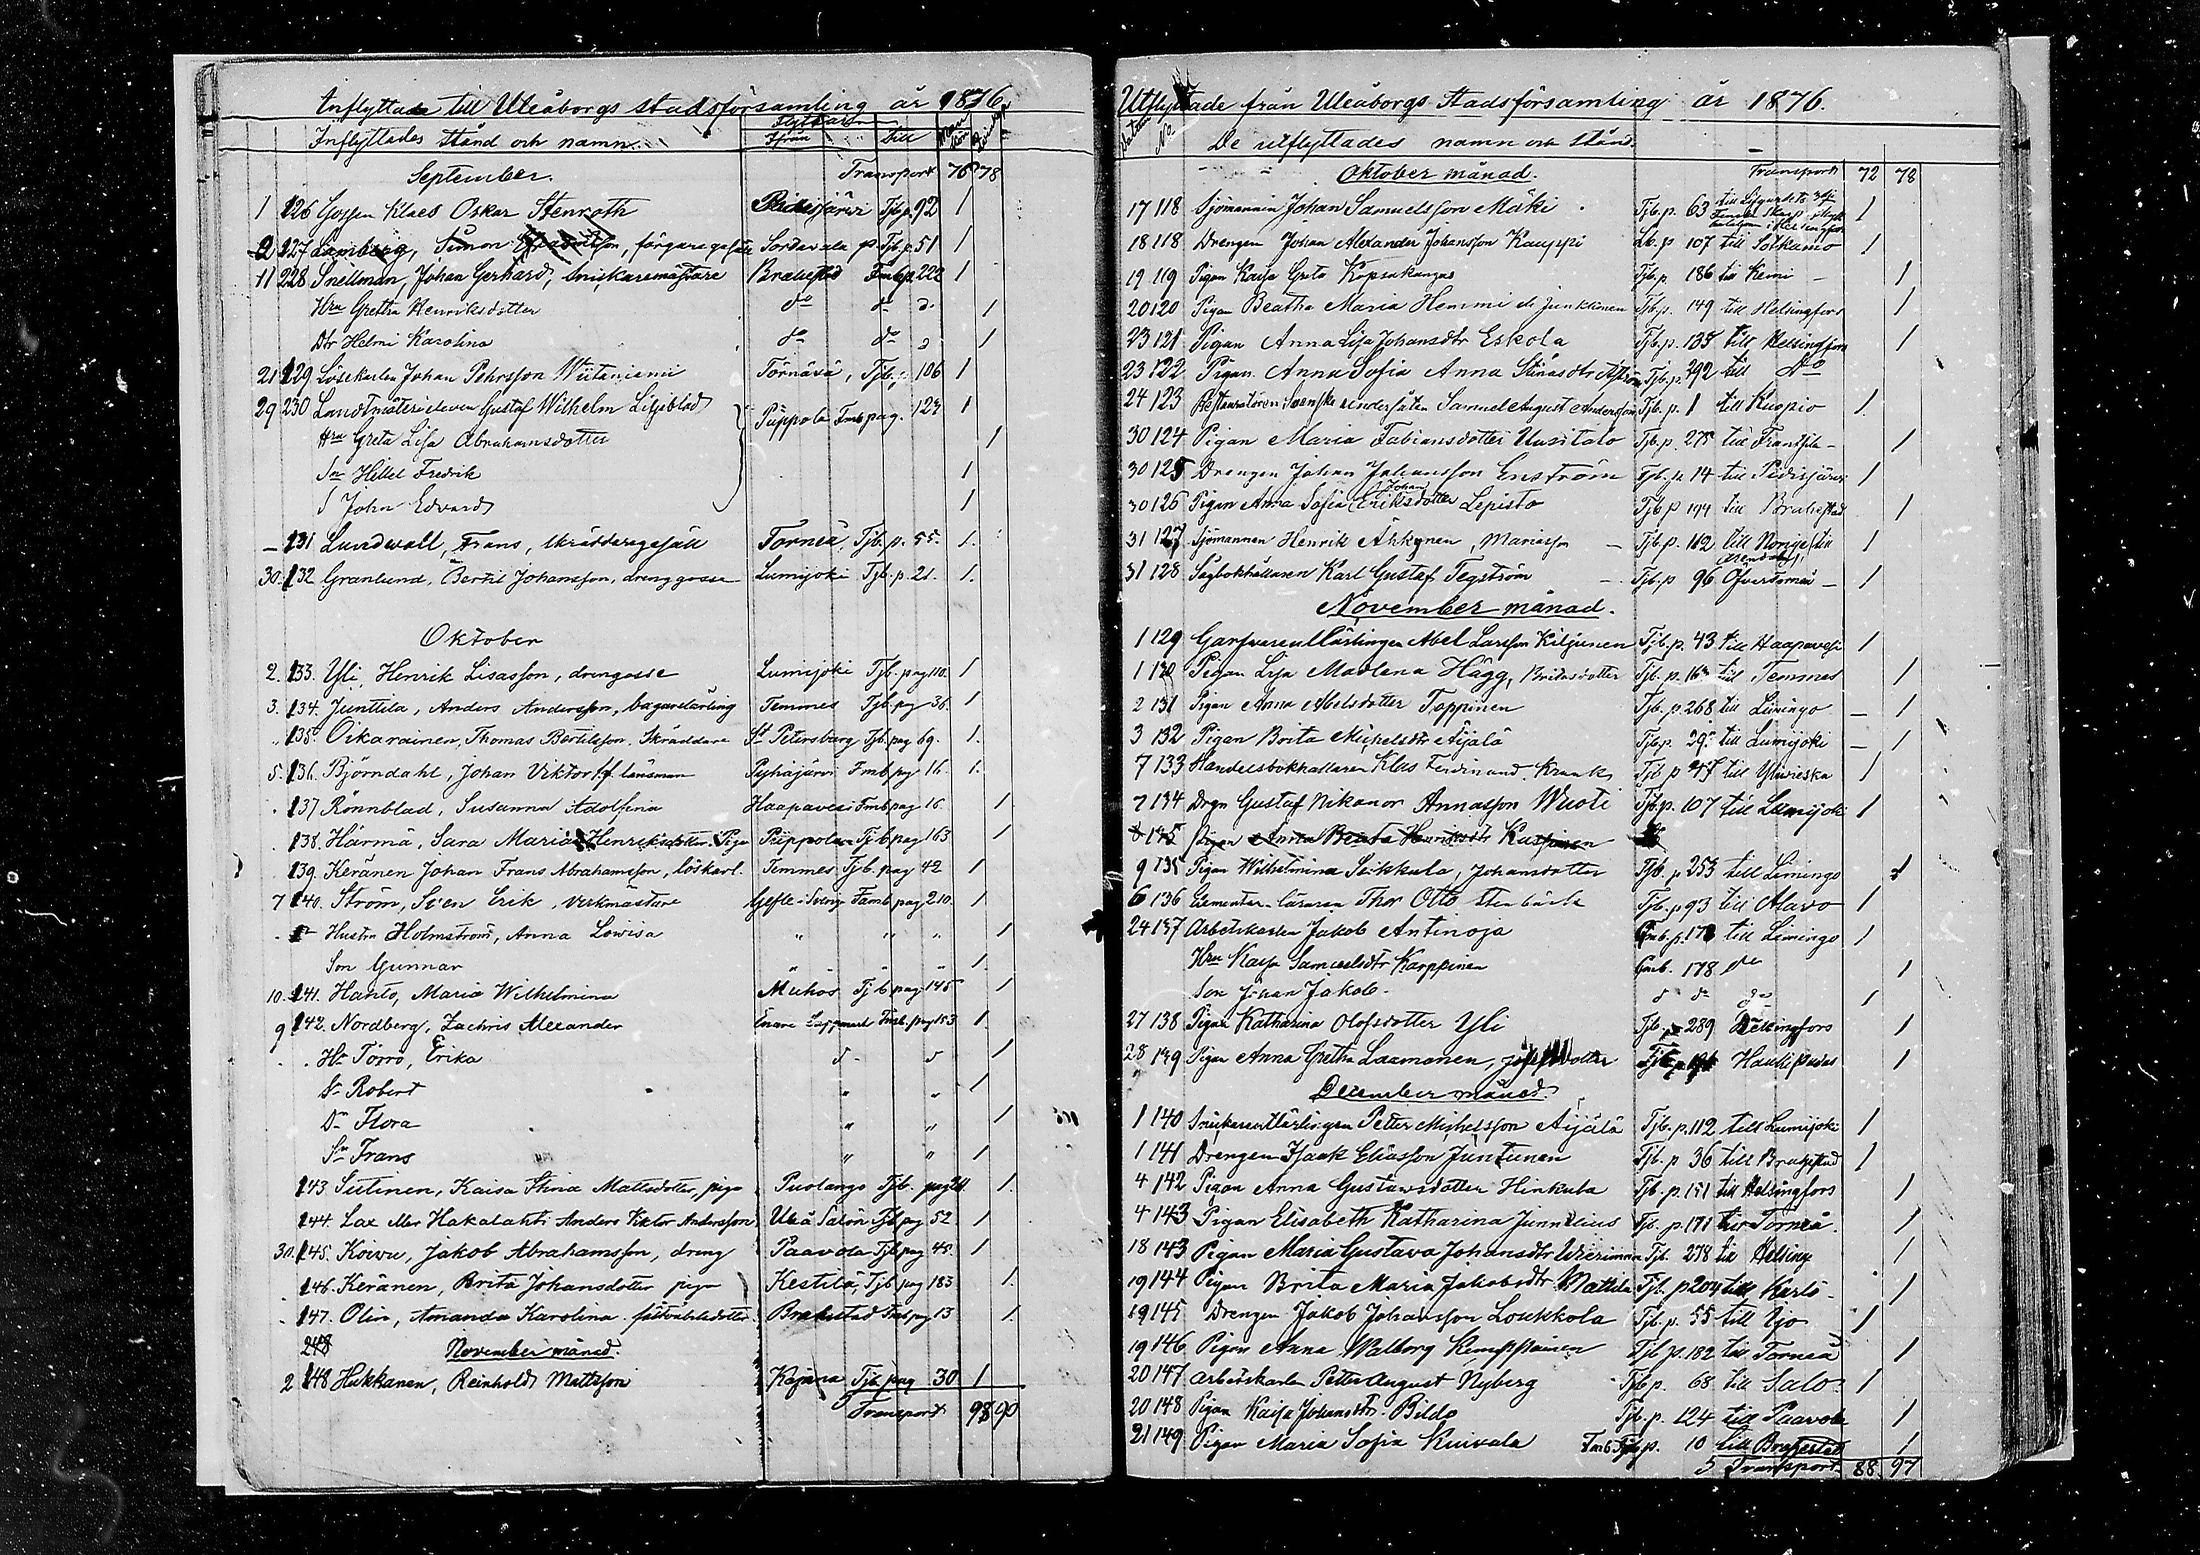 Inflyttade till Uleåborgs stadsförsamling år 1876.
Inflyttades stånd och namn. Flyttade ifrån till Mankön Qvinkön
September. Transport 76 78
1 126 Gossen Klaes Oskar Stenroth Pidisjärvi Tjb.p. 92 1
2 227 Lamberg, Simon färgaregesäll Sordavala p. Tjb.p. 51 1
11 228 Snellman, Johan Gerhard, snickaremästare Brahestad Fmb.p. 222 1
Hru Gretha Henriksdotter do do d. 1
Dtr Helmi Karolina do do d 1
21 229 Löskarlen Johan Pehrsson Wiitaniemi Törnävä, Tjb.p. 106 1
29 230 Landtmäterieleven Gustaf Wilhelm Liljeblad Piippola Fmb.pag. 123 1
Hru Greta Lisa Abrahamsdotter 1
Sn Hillel Fredrik 1
S John Edvard 1
131 Lundwall, Frans, skräddaregesäll Torneå, Tjb.p. 55 1.
30. 132 Granlund, Bertil Johansson, drenggosse Lumijoki Tjb.p. 21. 1.
Oktober
2. 133. Yli, Henrik Lisasson, drengosse Lumijoki Tjb.pag 110. 1
3. 134. Junttila, Anders Andersson, bagarelärling Temmes Tjb.pg 36. 1
" 135. Oikarainen, Thomas Bertilsson. Skräddare St Petersburg Tjb.pag 69. 1.
5. 136. Björndahl, Johan Viktor f.f. länsman Pyhäjärvi Fmb.pg 16. 1.
. 137 Rönnblad, Susanna Adolfina Haapavesi Fmb.pag 16 1
138. Härmä, Sara Maria Henriksdotter. Piga Piippola Tjb.pag 163 1
139. Keränen Johan Frans Abrahamsson, löskarl. Temmes Tjb. pag 42 1
7 140. Ström, Sven Erik, verkmästare Gefle i Sverige Famb.pag 210. 1
Hustru Holmström, Anna Lowisa " " " 1
Son Gunnar " " " 1.
10. 141. Hanto, Maria Wilhelmina Muhos Tjb pag 145 1
9 142. Nordberg, Zachris Alexander Enare Lappmark Fmb.pag 153 1.
. . Hu Törrö, Erika d- d 1
Sn Robert " " 1
Dr Flora " " 1
Sn Frans " " 1
143. Sutinen, Kaisa Stina Mattsdotter, piga Puolango Tjb. pag 211 1.
144. Lax eller Hakalahti Anders Viktor Andersson Uleå Salon Tjb pg 52 1
30. 145. Koivu, Jakob Abrahamsson, dreng Paavola Tjb pag 45. 1
. 146. Keränen, Brita Johansdotter piga Kestilä, Tjb pag 183 1.
. 147. Olin, Amanda Karolina. Brahestad Fmb pg 13 1.
248 November månad.
2 148 Hukkanen, Reinhold Mattsson Kajana Tjb pag 30 1
Transport 98 90
Utflyttade från Uleåborgs Stadsförsamling år 1876.
Datum No De utflyttades namn och stånd
Oktober månad. Transport 72 78
17 118 Sjömannen Johan Samuelsson Mäki Tjb.p. 63 1
18 118 Drengen Johan Alexander Johansson Kauppi Lb.p 107 till Sotkamo 1
19 119 Pigan Kaisa Greta Kopsakangas Tjb.p. 186 till Kemi 1
20 120 Pigan Beatha Maria Hemmi el. Junkkinen Tjb.p. 149 till Helsingfors 1
23 121 Pigan Anna Lisa Johansdtr Eskola Tjb.p. 135 till Helsingfors 1
23 122. Pigan Anna Sofia Anna Stinasdtr Åström Tjb.p. 292 till do
24 123 Restauratören Svenske undersåten Samuel August Andersson Tjb.p. 1 till Kuopio 1.
30 124 Pigan Maria Fabiansdotter Uusitalo Tjb.p. 275 till Frantsila - 1
30 125 Drengen Johan Johansson Enström Tjb.p. 14 till Pidisjärvi 1
30 126 Pigan Anna Sofia Johan Eriksdotter Lepisto Tjb p 194 till Brahestad 1
31 127 Sjömannen Henrik Ähkynen, Mariasson Tjb.p. 112 till Norige 1
31 128 Sågbokhållaren Karl Gustaf Tegström Tjb.p 96 Öfvertorneå 1
November månad.
1 129 Garfvarelärlingen Abel Larsson Kiljunen Tjb.p. 43 till Haapavesi 1
1 130 Pigan Lisa Madlena Hägg, Britasdotter Tjb.p. 163 till Temmes 1
2 131 Pigan Anna Abelsdotter Toppinen Tjb.p. 268 till Limingo 1
3 132 Pigan Brita Michelsdtr Äijälä Tjb.p. 29. till Lumijoki 1
7 133 Handelsbokhållaren Klas Ferdinand Kraak Tjb p 47 till Ylivieska 1
7 134 Drgn Gustaf Nikanor Annasson Wuoti Tjb.p. 107 till Lumijoki 1
8 135 Pigan Anna Beata Henriksdtr Karppinen
9 135 Pigan Wilhelmina Siikkala, Johansdotter Tjb. p 253 till Limingo 1
6 136 Elementar-läraren Thor Otto Stenbäck Tjb.p 93 till Alavo 1
24 137 Arbetskarlen Jakob Antinoja Fmb.p. 178 till Limingo 1
Hru Kaisa Samuelsdtr Karppinen Fmb. 178 do 1
Son Johan Jakob. d do do 1
27 138 Pigan Katharina Olofsdotter Yli Tjb.p 289 Helsingfors 1
28 139 Pigan Anna Gretha Laamanen, Josefsdotter Tjb.p Haukipudas 1
December månad.
1 140 Snickarelärlingen Petter Michelsson Äijälä Tjb.p. 112 till Lumijoki 1
1 141 Drengen Isaak Eliasson Juntunen Tjb.p 36 till Brahestad 1
4 142 Pigan Anna Gustavsdotter Hinkula Tjb.p. 151 till Helsingfors 1
4 143 Pigan Elisabeth Katharina Junnelius Tjb. p. 171 till Torneå. 1
18 143 Pigan Maria Gustava Johansdtr Wierimaa Tjb. 278 till Helsing 1
19 144 Pigan Brita Maria Jakobsdtr Mattila Tjb. p 204 till Karlö 1
19 145 Drengen Jakob Johansson Loukkola Tjb.p. 55 till Ijo 1
19 146 Pigan Anna Walborg Kemppainen Tjb p. 182 till Torneå 1
20 147 Arbetskarlen Petter August Nyberg Tjb p. 68 till Salo. 1
20 148 Pigan Kaisa Johansdtr. Bildo Tjb.p. 124 till Paavola 1
21 149 Pigan Maria Sofia Kuivala Fmb Tjb p. 10 till Brahestad 1
5 Transport. 88 97